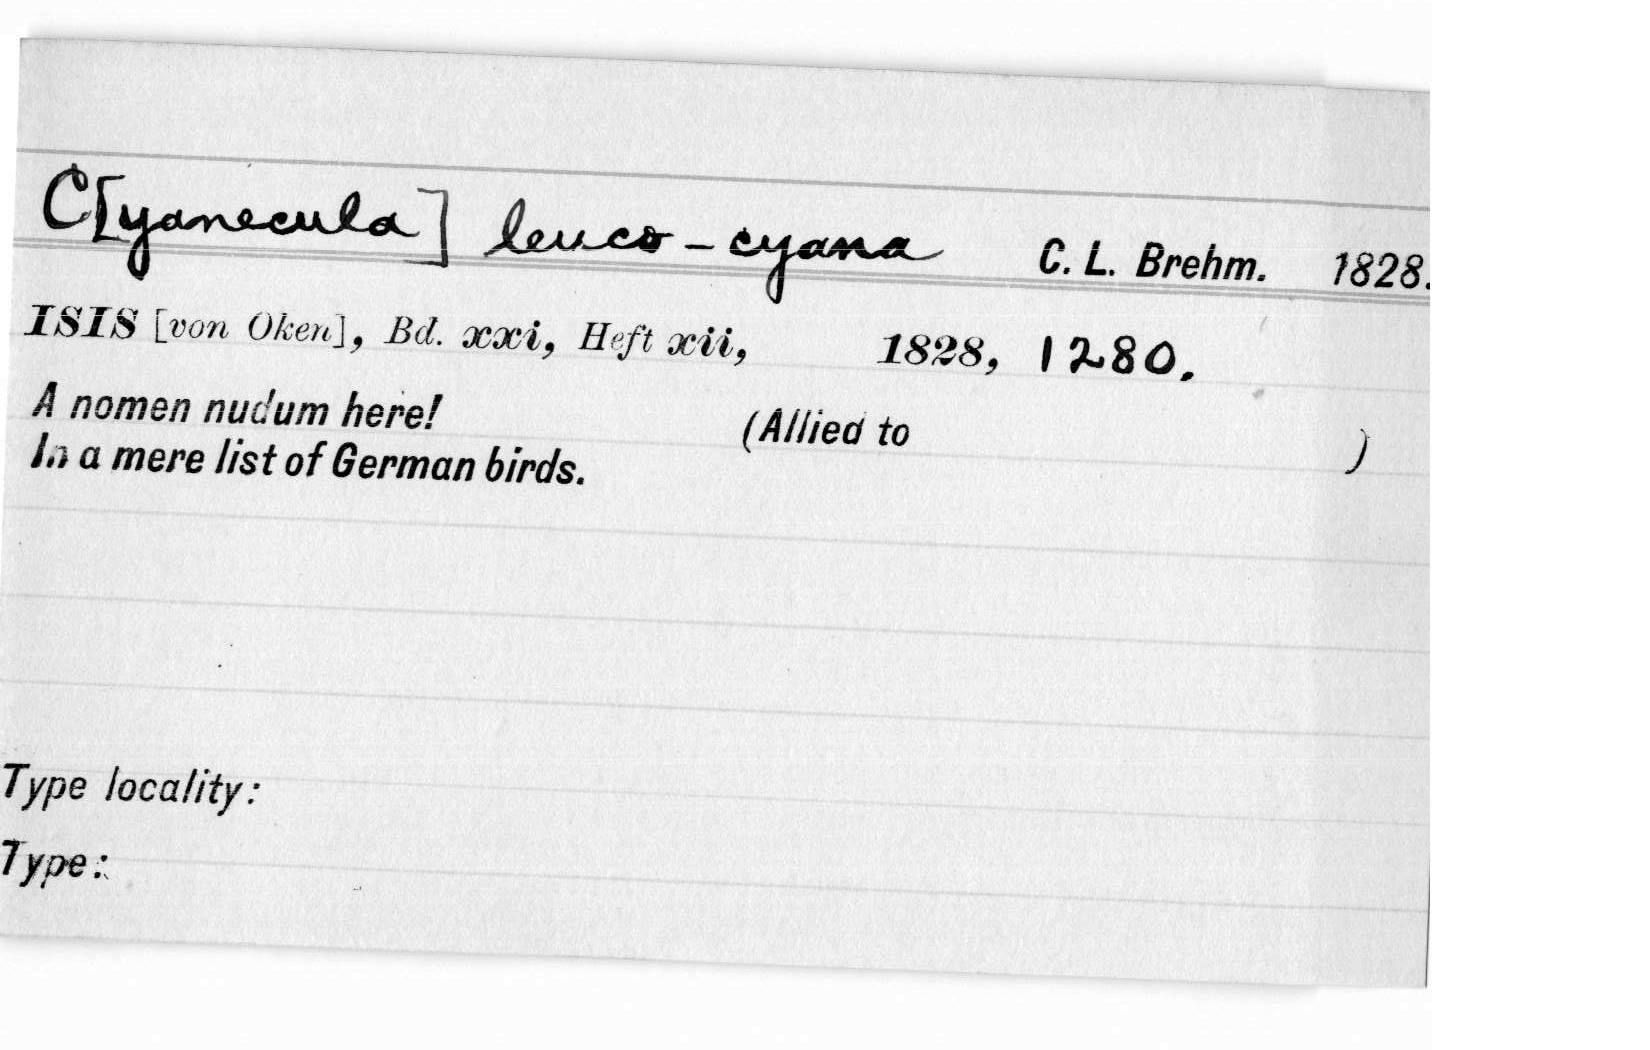 C[yanecula] leuco-cyana C. L. Brehm. 1828.
ISIS [von Oken], Bd. xxi, Heft xii, 1828, 1280.
A nomen nudum here! (Allied to )
In a mere list of German birds.
Type locality:
Type: